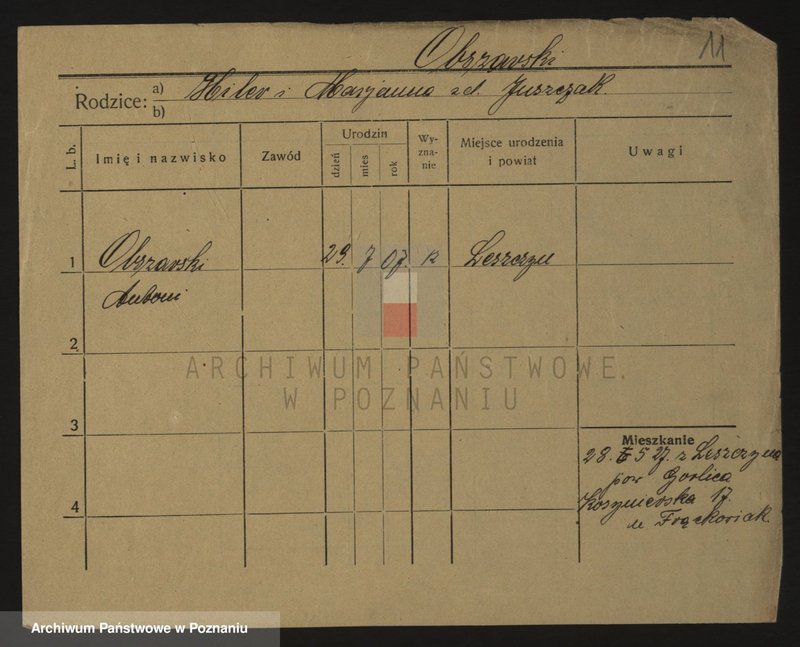 11
Obszarski
Rodzice: a) b)
i Marjanna zd. Juszczak.
L. b.
Imię i nazwisko
Zawód
Urodzin
dzień
mies
rok
Wy-
zna-
nie
Miejsce urodzenia
i powiat
Uwagi
1 Obszarski 29. 7 07. Leszczyn
Antoni
2
ARCHIWUM PAŃSTWOWE
W POZNANIU
3
Mieszkanie
28. 5 27. z Leszczyna
pow Gorlica
4 17.
Frąckowiak
Archiwum Państwowe w Poznaniu